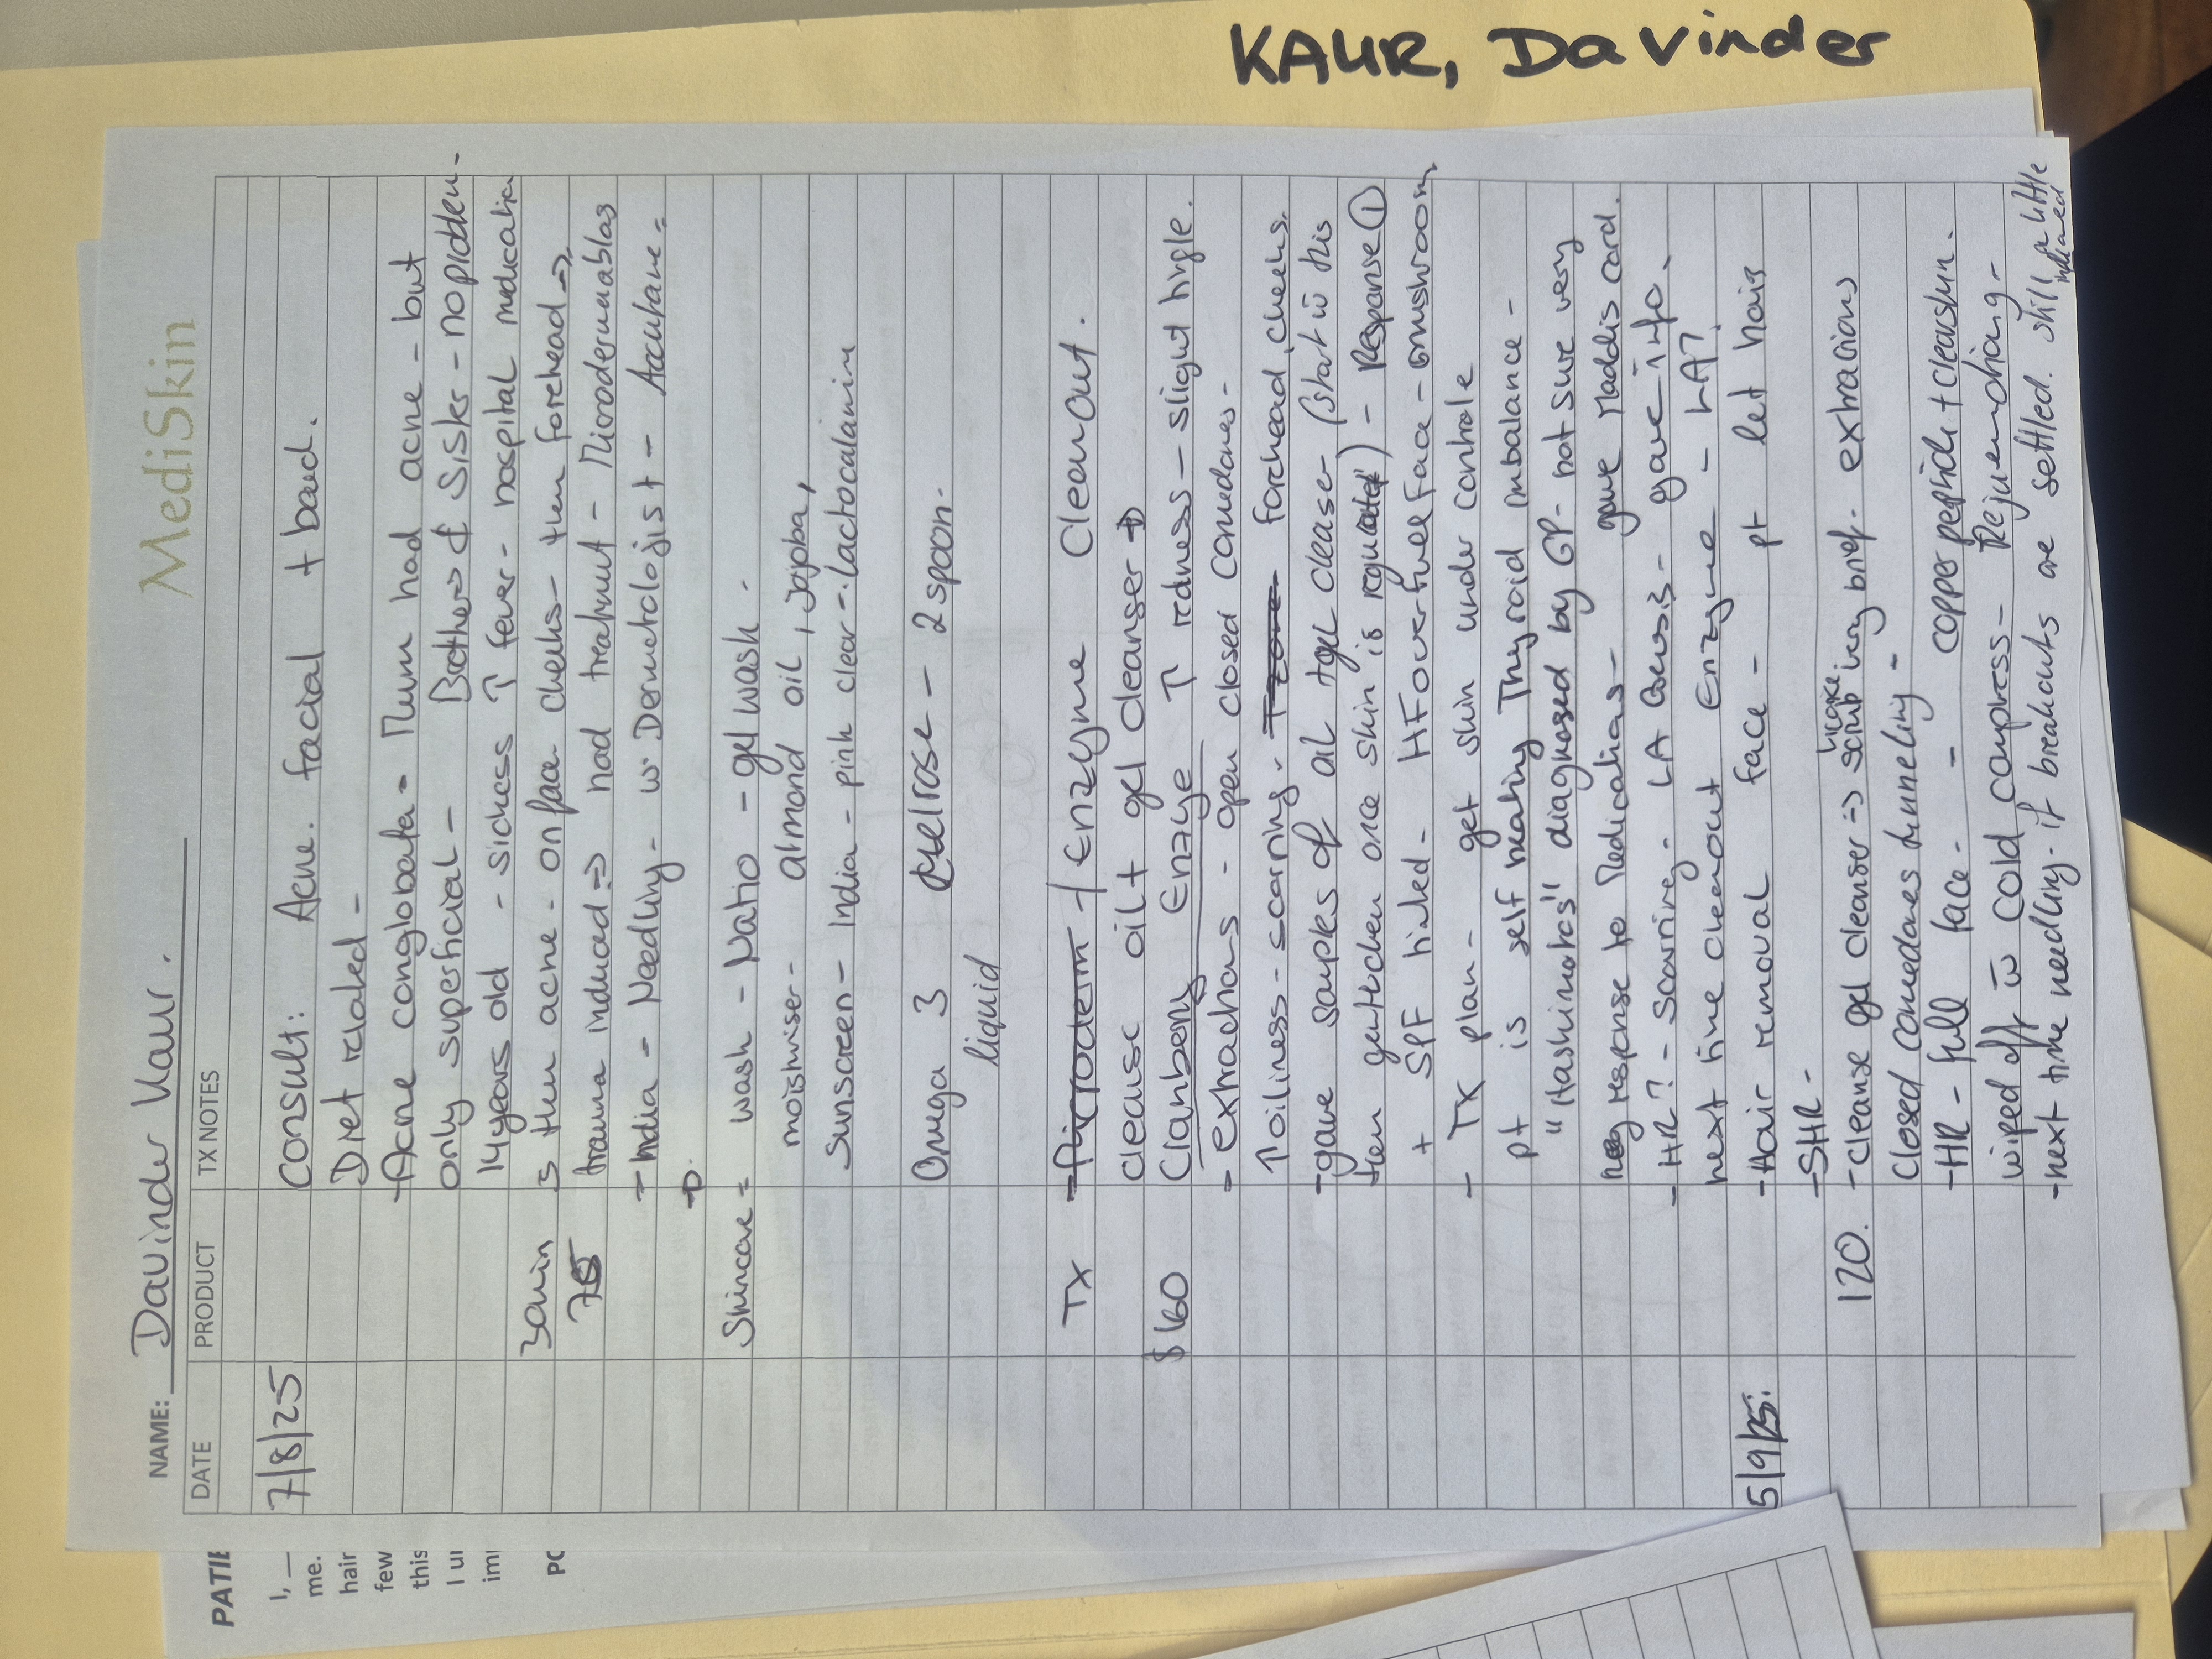 KAUR, Davinder
MediSkin
NAME: Davinder Kaur.
DATE PRODUCT TX NOTES
7/8/25 Consult: Acne. facial + bacd.
Diet related -
- Acne conglobata - Mum had acne - but
only superficial - Brother & Sister - no problem -
14 years old - sickness ↑ fever - hospital medication
30min then acne - on face cheeks - then forehead ⇒
75 trauma induced ⇒ had treatment - Microdermablas
- India - Needling - w Dermatologist - Accutane =
Skincare = wash - Natio - gel wash -
moisturiser - almond oil, Jojoba,
Sunscreen - India - pink clear - lactocalamin
Omega 3 - 2 spoon.
liquid
TX - Microderm / Enzyme Cleanout.
cleanse oil + gel cleanser
$160 Cranberry Enzyme ↑ redness - slight tingle.
- extractions - open closed comedones -
↑ oiliness - scarring - Tzone forehead, cheeks,
- gave samples of oil + gel cleaser (start w this
then once skin is regulated) - Response ①
+ SPF tinted - HF over full face - mushroom
- TX plan - get skin under controle
pt is self healing Thyroid imbalance -
"Hashimoto's" diagnosed by GP - not sure very
response to Medications - gave Maddis card.
- HR? - scarring - LA - gave info -
next time cleanout Enzyme - LA?
5/9/25. - Hair removal face - pt let hair
- SHR -
120. - cleanse gel cleanser ⇒ scrub very brief - extractions
Closed comedones -
- HR - full face - - copper peptide + cleanskin.
wiped off w cold compress - Rejuvenating -
- next time needling - if breakouts are settled. still a little
inflamed
PATIE
I, —
me.
hair
few
this
I u
im
PO